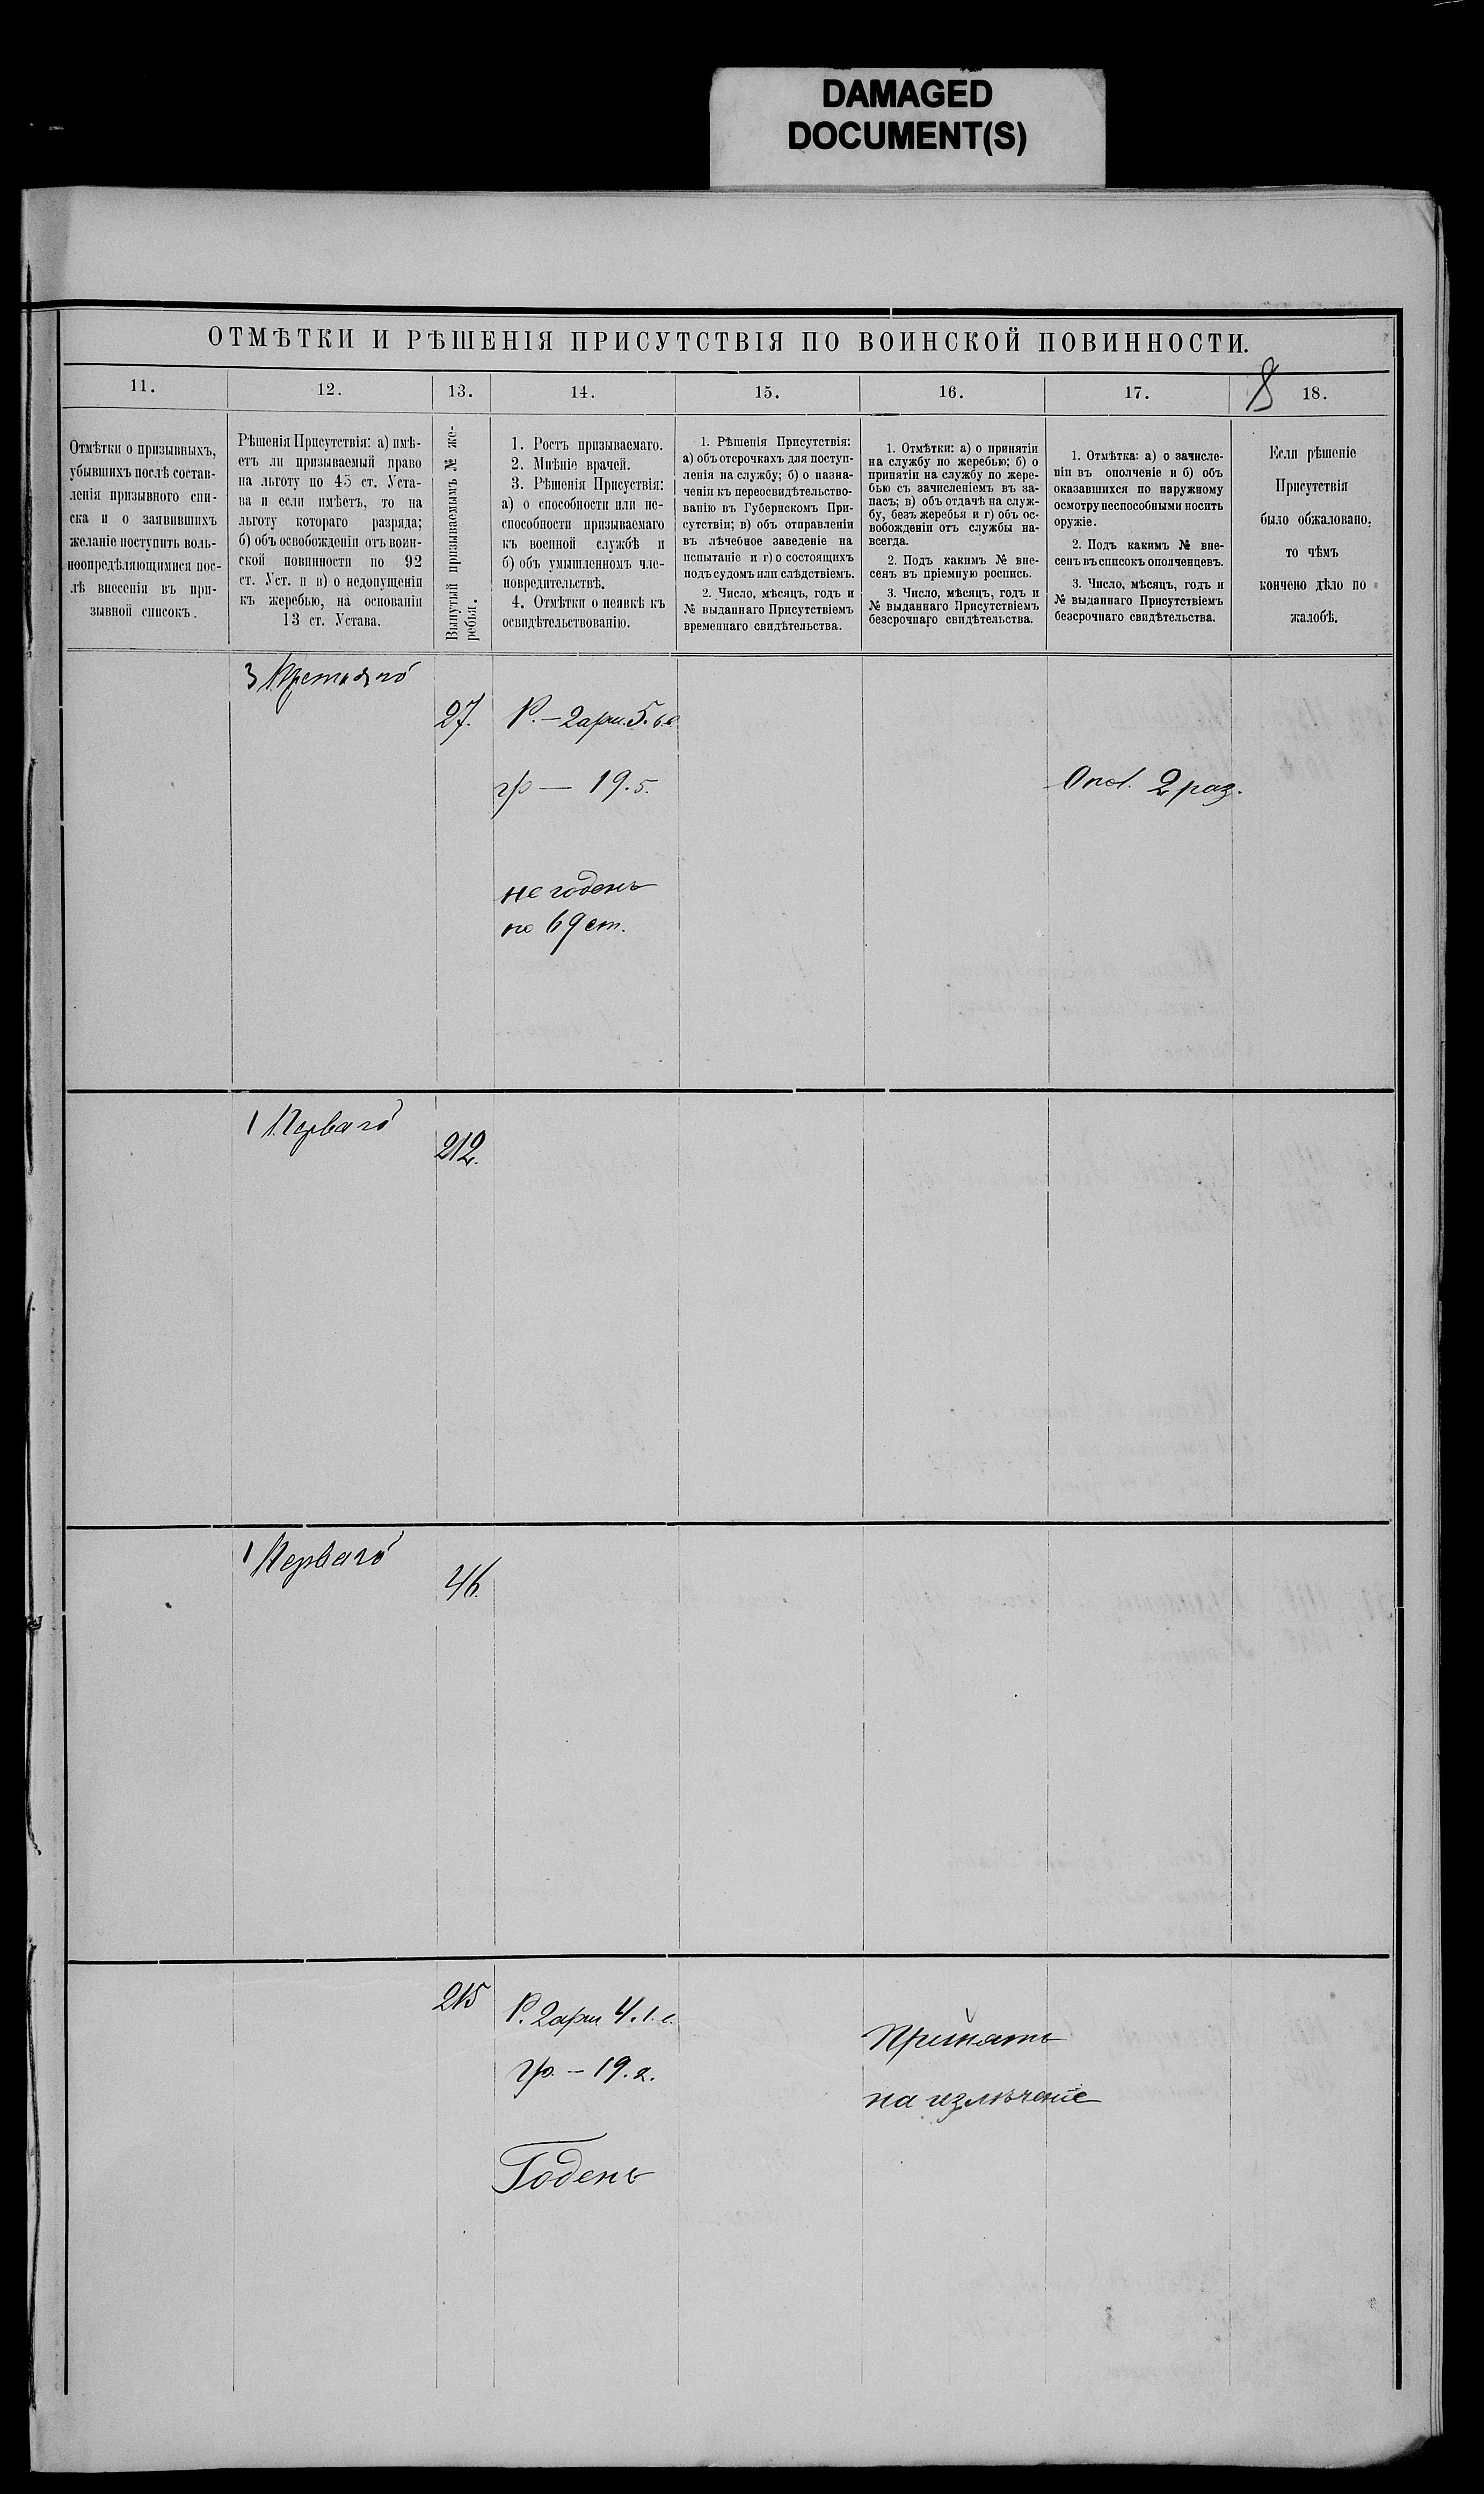 DAMAGED
DOCUMENT(S)
ОТМѢТКИ И РѢШЕНІЯ ПРИСУТСТВІЯ ПО ВОИНСКОЙ ПОВИННОСТИ.
8
11.
12.
13.
14.
15.
16.
17.
18.
Отмѣтки о призывныхъ,
убывшихъ послѣ состав-
ленія призывного спи-
ска и о заявившихъ
желаніе поступить воль-
ноопредѣляющимися пос-
лѣ внесенія въ при-
зывной списокъ.
Рѣшенія Присутствія: а) имѣ-
етъ ли призываемый право
на льготу по 45 ст. Уста-
ва и если имѣетъ, то на
льготу котораго разряда;
б) объ освобожденіи отъ воин-
ской повинности по 92
ст. Уст. и в) о недопущеніи
къ жеребью, на основаніи
13 ст. Устава.
Вынутый призываемымъ № же-
ребья.
1. Ростъ призываемаго.
2. Мнѣніе врачей.
3. Рѣшенія Присутствія:
а) о способности или не-
способности призываемаго
къ военной службѣ и
б) объ умышленномъ чле-
новредительствѣ.
4. Отмѣтки о неявкѣ къ
освидѣтельствованію.
1. Рѣшенія Присутствія:
а) объ отсрочкахъ для поступ-
ленія на службу; б) о назна-
ченіи къ переосвидѣтельство-
ванію въ Губернскомъ При-
сутствіи; в) объ отправленіи
въ лѣчебное заведеніе на
испытаніе и г) о состоящихъ
подъ судомъ или слѣдствіемъ.
2. Число, мѣсяцъ, годъ и
№ выданнаго Присутствіемъ
временнаго свидѣтельства.
1. Отмѣтки: а) о принятіи
на службу по жеребью; б) о
принятіи на службу по жере-
бью съ зачисленіемъ въ за-
пасъ; в) объ отдачѣ на служ-
бу, безъ жеребья и г) объ ос-
вобожденіи отъ службы на-
всегда.
2. Подъ какимъ № вне-
сенъ въ пріемную роспись.
3. Число, мѣсяцъ, годъ и
№ выданнаго Присутствіемъ
безсрочнаго свидѣтельства.
1. Отмѣтка: а) о зачисле-
ніи въ ополченіе и б) объ
оказавшихся по наружному
осмотру неспособными носить
оружіе.
2. Подъ какимъ № вне-
сенъ въ списокъ ополченцевъ.
3. Число, мѣсяцъ, годъ и
№ выданнаго Присутствіемъ
безсрочнаго свидѣтельства.
Если рѣшеніе
Присутствія
было обжаловано,
то чѣмъ
кончено дѣло по
жалобѣ.
3
27.
Р. – 2 арш. 5. в.
гр – 19. 5.
2 раз.
не годенъ
по 69 ст.
1 Перваго
212.
1 Перваго
46.
215
Р. 2 арш 4. 1.
гр. – 19. 2.
Годенъ
Принятъ
на излѣченіе